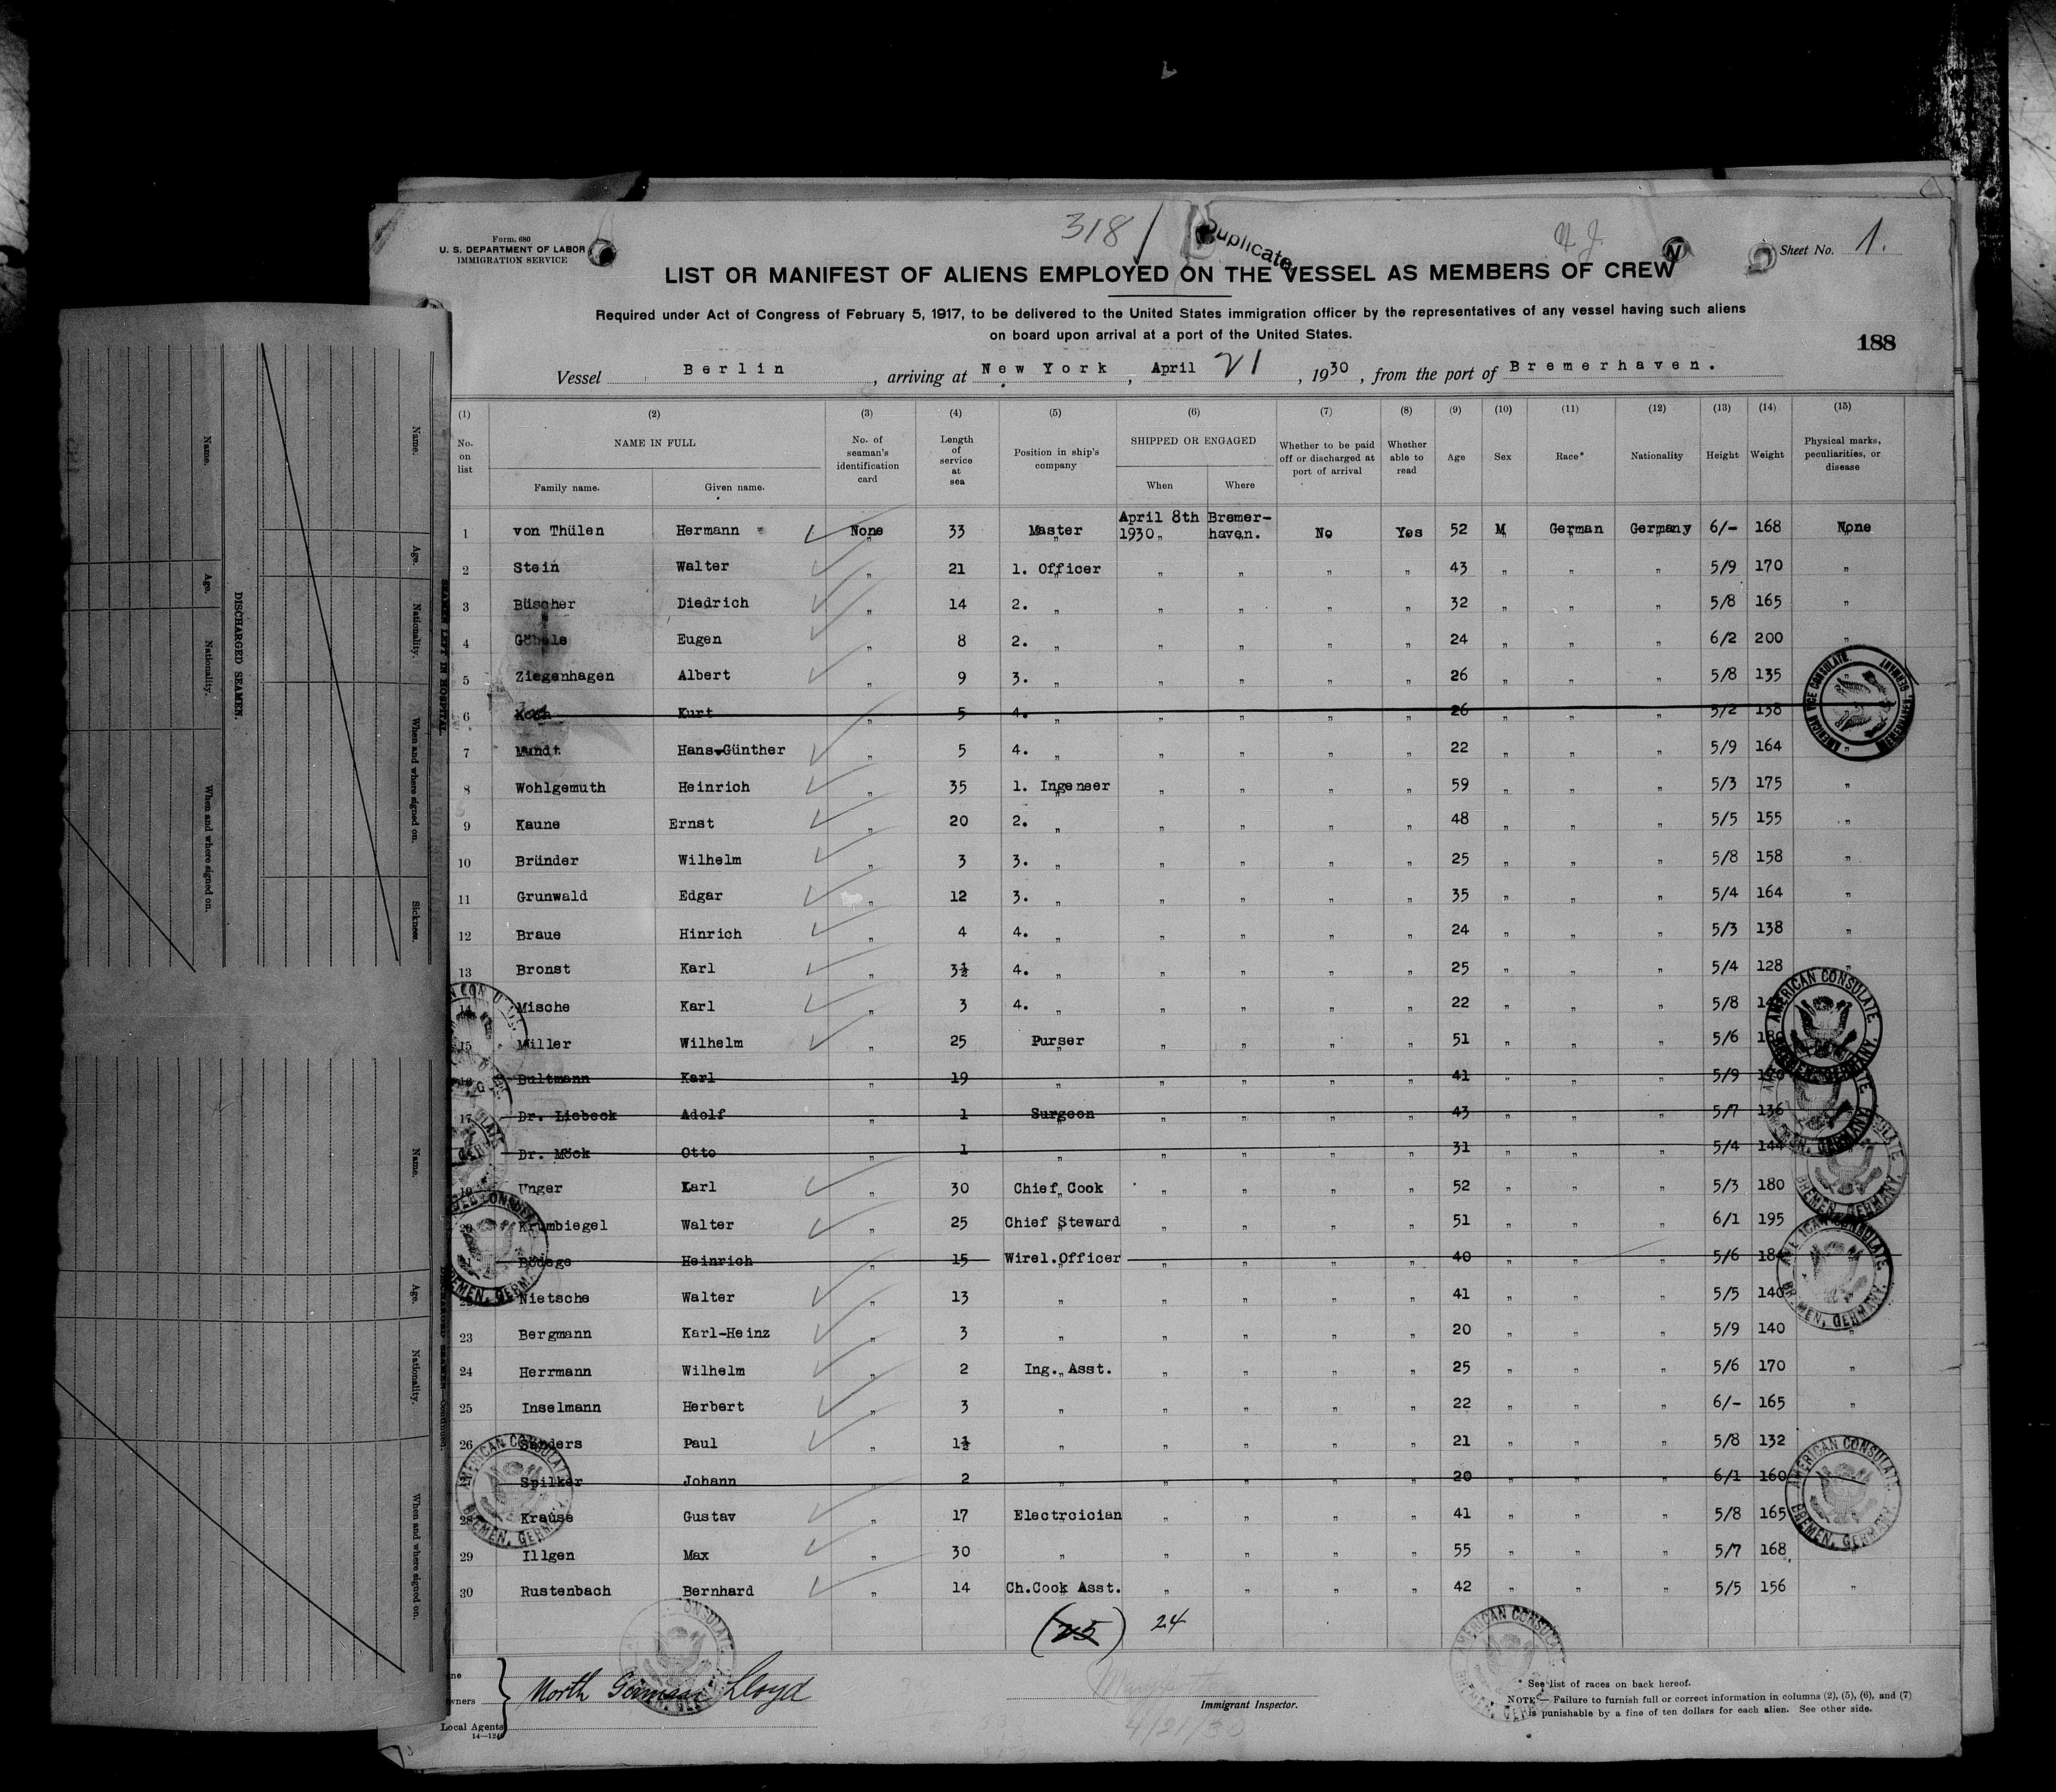 Form. 680
U. S. DEPARTMENT OF LABOR
IMMIGRATION SERVICE
318
Duplicate
N. J.
N
Sheet No. 1.
LIST OR MANIFEST OF ALIENS EMPLOYED ON THE VESSEL AS MEMBERS OF CREW
Required under Act of Congress of February 5, 1917, to be delivered to the United States immigration officer by the representatives of any vessel having such aliens
on board upon arrival at a port of the United States.
188
Vessel Berlin, arriving at New York, April 21, 1930, from the port of Bremerhaven.
(1) (2) (3) (4) (5) (6) (7) (8) (9) (10) (11) (12) (13) (14) (15)
No. on list NAME IN FULL Family name. Given name. No. of seaman's identification card Length of service at sea Position in ship's company SHIPPED OR ENGAGED When Where Whether to be paid off or discharged at port of arrival Whether able to read Age Sex Race* Nationality Height Weight Physical marks, peculiarities, or disease
1 von Thülen Hermann None 33 Master April 8th 1930 Bremerhaven. No Yes 52 M German Germany 6/- 168 None
2 Stein Walter " 21 1. Officer " " " " 43 " " " 5/9 170 "
3 Büscher Diedrich " 14 2. " " " " " 32 " " " 5/8 165 "
4 Göbels Eugen " 8 2. " " " " " 24 " " " 6/2 200 "
5 Ziegenhagen Albert " 9 3. " " " " " 26 " " " 5/8 135 "
6 Koch Kurt " 5 4. " " " " " 26 " " " 5/2 138
7 Mundt Hans-Günther " 5 4. " " " " " 22 " " " 5/9 164 "
8 Wohlgemuth Heinrich " 35 1. Ingeneer " " " " 59 " " " 5/3 175 "
9 Kaune Ernst " 20 2. " " " " " 48 " " " 5/5 155 "
10 Bründer Wilhelm " 3 3. " " " " " 25 " " " 5/8 158 "
11 Grunwald Edgar " 12 3. " " " " " 35 " " " 5/4 164 "
12 Braue Hinrich " 4 4. " " " " " 24 " " " 5/3 138 "
13 Bronst Karl " 3½ 4. " " " " " 25 " " " 5/4 128 "
14 Mische Karl " 3 4. " " " " " 22 " " " 5/8
15 Müller Wilhelm " 25 Purser " " " " 51 " " " 5/6 180
16 Bultmann Karl " 19 " " " " " 41 " " " 5/9 170
17 Dr. Liebeck Adolf " 1 Surgeon " " " " 43 " " " 5/7 136
Dr. Möck Otto " 1 " " " " " 31 " " " 5/4 144
19 Unger Karl " 30 Chief Cook " " " " 52 " " " 5/3 180
20 Krumbiegel Walter " 25 Chief Steward " " " " 51 " " " 6/1 195
Bödege Heinrich " 15 Wirel. Officer " " " " 40 " " " 5/6 184
22 Nietsche Walter " 13 " " " " " 41 " " " 5/5 140
23 Bergmann Karl-Heinz " 3 " " " " " 20 " " " 5/9 140 "
24 Herrmann Wilhelm " 2 Ing. Asst. " " " " 25 " " " 5/6 170 "
25 Inselmann Herbert " 3 " " " " " 22 " " " 6/- 165 "
26 Sanders Paul " 1½ " " " " " 21 " " " 5/8 132
Spilker Johann " 2 " " " " " 20 " " " 6/1 160
28 Krause Gustav " 17 Electrcician " " " " 41 " " " 5/8 165
29 Illgen Max " 30 " " " " " 55 " " " 5/7 168 "
30 Rustenbach Bernhard " 14 Ch.Cook Asst. " " " " 42 " " " 5/5 156 "
(25) 24
North German Lloyd
Owners
Local Agents
Immigrant Inspector.
4/21/30
* See list of races on back hereof.
NOTE.—Failure to furnish full or correct information in columns (2), (5), (6), and (7)
is punishable by a fine of ten dollars for each alien. See other side.
AMERICAN VICE CONSULATE. BREMERHAVEN, GERMANY
AMERICAN CONSULATE. BREMEN, GERMANY.
AMERICAN CONSULATE. BREMEN, GERMANY.
AMERICAN CONSULATE. BREMEN, GERMANY.
SEAMEN LEFT IN HOSPITAL
Name. Age. Nationality. When and where signed on. Sickness.
DISCHARGED SEAMEN.
Name. Age. Nationality. When and where signed on.
DISCHARGED SEAMEN—Continued.
Name. Age. Nationality. When and where signed on.